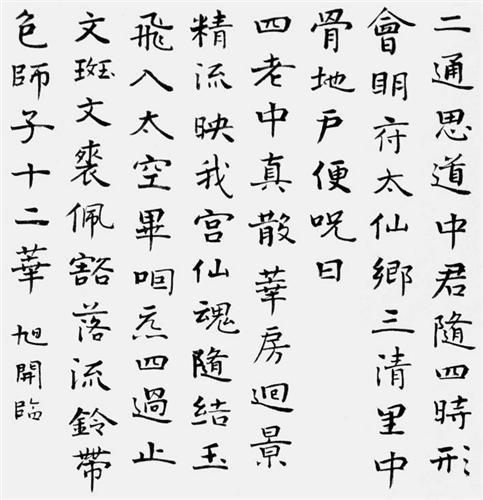 二通思道中君隨四時形
會明府太仙鄉三清里中
骨地户便呪曰
四老中真散華房迴景
精流映我宫仙魂隨結玉
飛入太空畢咽炁四過止
文斑文裘佩豁落流鈴帶
色師子十二華 旭開臨